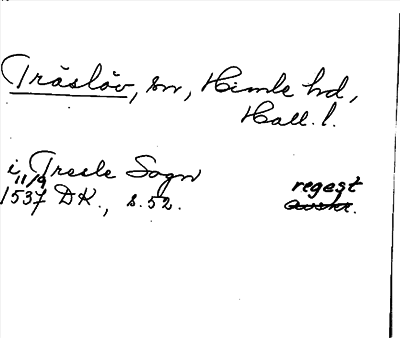 Träslöv, sn, Himle hd,
Hall. l.
i Tresle Sogn
11/9
1537 DK., s. 52.
regest
avskr.